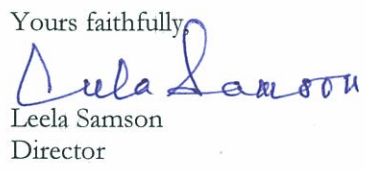 Yours faithfully,
Leela Samson
Leela Samson
Director